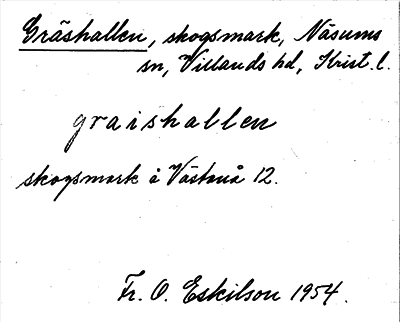 Gräshallen, skogsmark, Näsums
sn, Villands hd, Krist. l.
graishallen
skogsmark å Västanå 12.
Fr. O. Eskilson 1954.